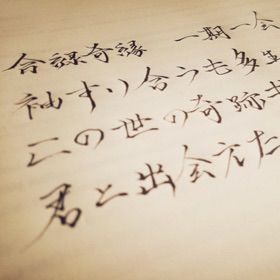 合縁奇縁　一期一会
袖すり合うも多生
この世の奇跡
君と出会えた